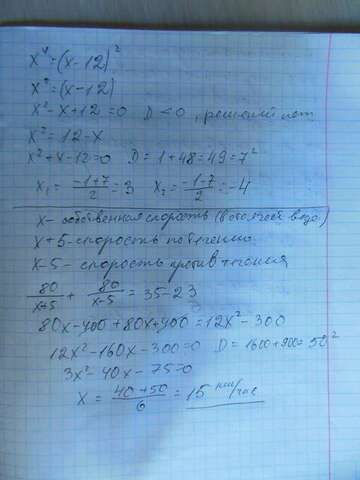 x⁴=(x-12)²
x²=(x-12)
x²-x+12=0 D<0, решений нет
x²=12-x
x²+x-12=0 D=1+48=49=7²
x₁=(-1+7)/2=3 x₂=(-1-7)/2=-4
x- собственная скорость (в стоячей воде)
x+5-скорость по течению
x-5-скорость против течения
80/(x+5)+80/(x-5)=35-23
80x-400+80x+400=12x²-300
12x²-160x-300=0 D=1600+900=50²
3x²-40x-75=0
x=(40+50)/6=15 км/час